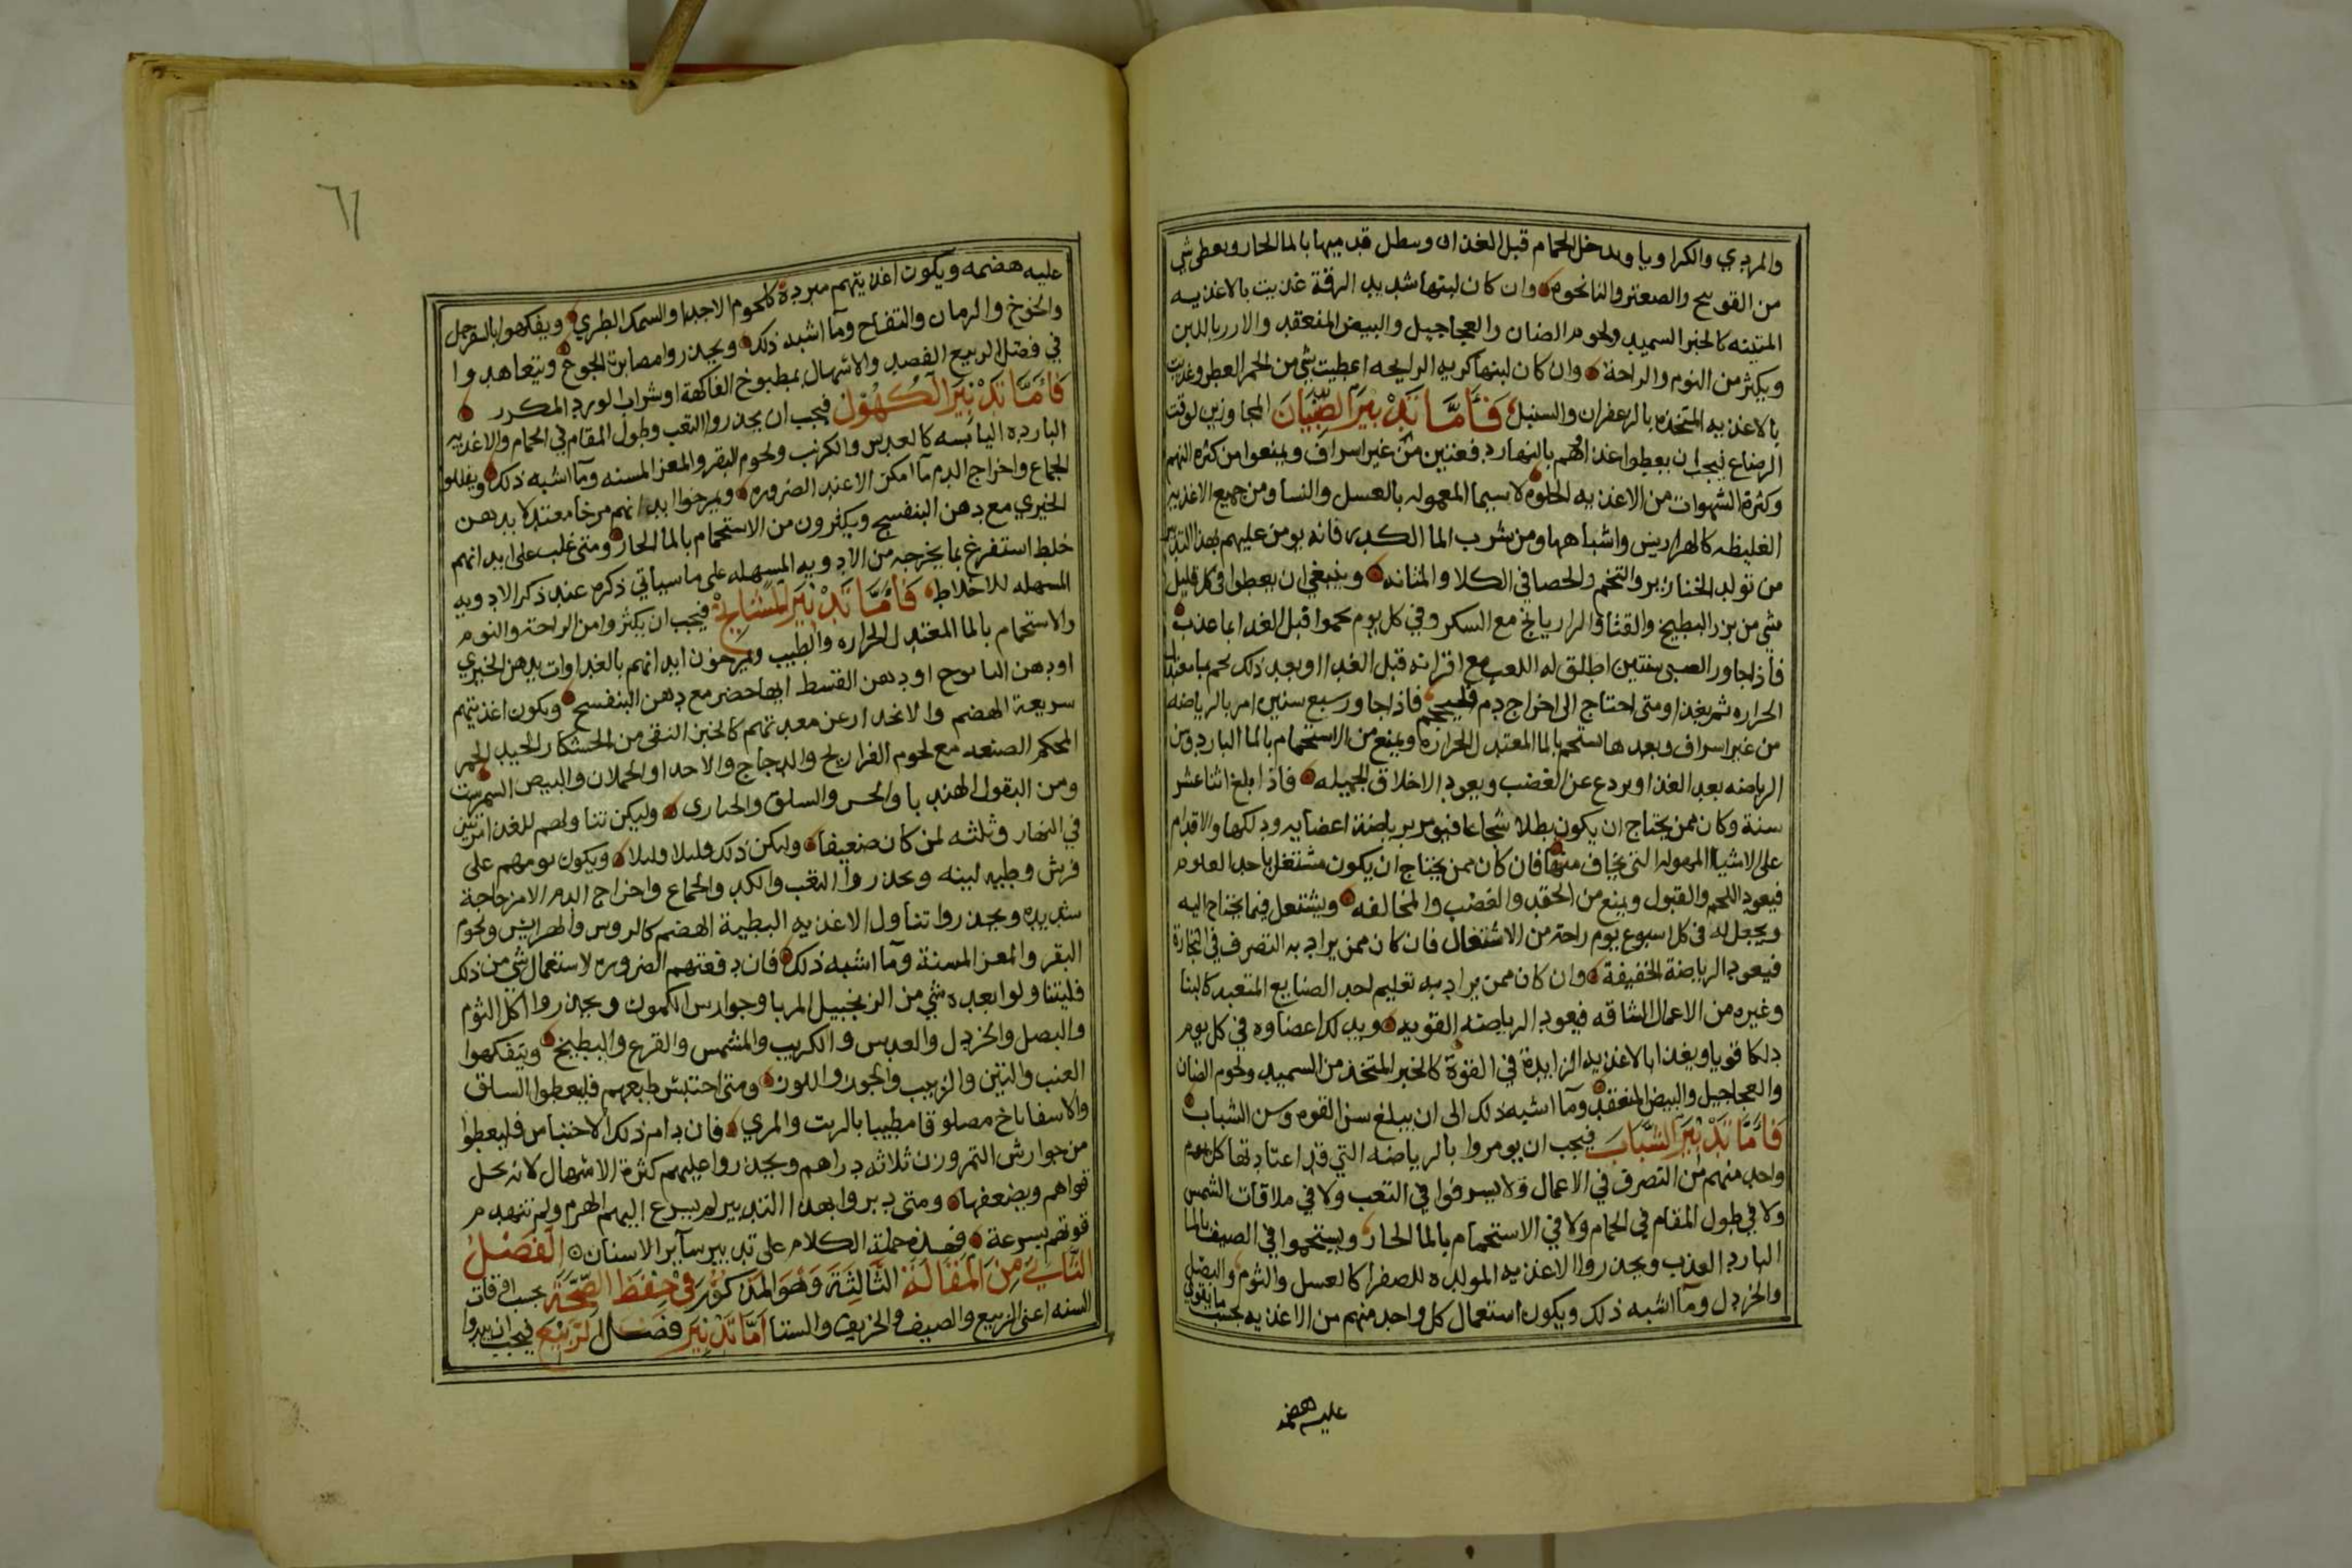 والمردي والكراويا ويدخل الحمام قبل الغدا وسطل قدميها بالما الحار ويعطى شي
من القويح والصعتر والنانخوه وان كان لبنها شديد الرقة غديت بالاغذيه
المتينه كالخبز السميد ولحوم الضان والعجاجيل والبيض المنعقد والارز باللبن
ويكثر من النوم والراحة وان كان لبنها كريه الرايحه اعطيت شي من الخمر العطر وغديت
بالاغذيه المتخذه بالزعفران والسنبل فأما تدبير الصبيان المجاوزين لوقت
الرضاع فيجب ان يعطوا غداهم بالنهار دفعتين من غير اسراف ويمنعوا من كثره النهم
وكثرة الشهوات من الاغذيه الحلوه لاسيما المعموله بالعسل والنشا ومن جميع الاغذيه
الغليظه كالهرايس واشباهها ومن شرب الما الكدر فانه يومن عليهم بهذا التدبير
من تولد الخنازير والتخم والحصا في الكلا والمثانه وينبغي ان يعطوا في كل قليل
شي من بزر البطيخ والقثا والرازيانج مع السكر وفي كل يوم يحموا قبل الغدا بما عذب
فاذا جاوز الصبي سنتين اطلق له اللعب مع اقرانه قبل الغدا وبعد ذلك يحم بما معتدل
الحراره ثم يغدا ومتى احتاج الى اخراج دم فليحجم فاذا جاوز سبع سنين امر بالرياضه
من غير اسراف وبعدها يستحم بالما المعتدل الحراره ويمنع من الاستحمام بالما البارد ومن
الرياضه بعد الغدا ويردع عن الغضب ويعود الاخلاق الجميله فاذا بلغ اثنا عشر
سنة وكان ممن يحتاج ان يكون بطلا شجاعا فيومر برياضة اعضايه ودلكها والاقدام
على الاشيا المهوله التي يخاف منها فان كان ممن يحتاج ان يكون مشتغل باحد العلوم
فيعود اللحم والقبول ويمنع من الحقد والغضب والمخالفه ويشتغل فيما يحتاج اليه
ويجعل له في كل اسبوع يوم راحة من الاشتغال فان كان ممن يراد به التصرف في التجارة
فيعود الرياضة الخفيفة وان كان ممن يراد به تعليم احد الصنايع المتعبه كالبنا
وغيره من الاعمال الشاقه فيعود الرياضه القويه ويدلك اعضاوه في كل يوم
دلكا قويا ويغدا بالاغذيه الزايدة في القوة كالخبز المتخذ من السميد ولحوم الضان
والعجاجيل والبيض المنعقد وما اشبه ذلك الى ان يبلغ سن القوه وسن الشباب
فأما تدبير الشباب فيجب ان يومروا بالرياضه التي قد اعتادتها كل يوم
واحد منهم من التصرف في الاعمال ولا يسرفوا في التعب ولا في ملاقات الشمس
ولا في طول المقام في الحمام ولا في الاستحمام بالما الحار ويستحموا في الصيف بالما
البارد العذب ويحذروا الاغذيه المولده للصفرا كالعسل والثوم والبصل
والخردل وما اشبه ذلك ويكون استعمال كل واحد منهم من الاغذيه بحسب ما يقوى
عليه هضمه
٦١
عليه هضمه ويكون اغذيتهم مبردة كلحوم الاجدا والسمك الطري ويفكهوا بالسفرجل
والخوخ والرمان والتفاح وما اشبه ذلك ويحذروا مصابرة الجوع ويتعاهدوا
في فصل الربيع الفصد والاسهال بمطبوخ الفاكهة او شراب الورد المكرر
فأما تدبير الكهول فيجب ان يحذروا التعب وطول المقام في الحمام والاغذيه
البارده اليابسه كالعدس والكرنب ولحوم البقر والمعز المسنه وما اشبه ذلك ويقللوا
الجماع واخراج الدم ما امكن الا عند الضروره ويمرخوا ابدانهم مرخا معتدلا بدهن
الخيري مع دهن البنفسج ويكثرون من الاستحمام بالما الحار ومتى غلب على ابدانهم
خلط استفرغ بما يخرجه من الادويه المسهله على ما سياتي ذكره عند ذكر الادويه
المسهله للاخلاط فأما تدبير المشايخ فيجب ان يكثروا من الراحة والنوم
والاستحمام بالما المعتدل الحراره والطيب ويمرخون ابدانهم بالغداوات بدهن الخيري
او دهن البابونج او دهن القسط ايها حضر مع دهن البنفسج ويكون اغذيتهم
سريعة الهضم والانحدار عن معدتهم كالخبز النقي من الخشكار الجيد الخمر
المحكم الصنعه مع لحوم الفراريح والدجاج والاجدا والحملان والبيض النيمرشت
ومن البقول الهندبا والخس والسلق والخبازى وليكن تناولهم للغدا مرتين
في النهار وثلثه لمن كان ضعيفا وليكن ذلك قليلا قليلا ويكون نومهم على
فرش وطيه لينه ويحذروا التعب والكد والجماع واخراج الدم الا من حاجة
شديده ويحذروا تناول الاغذيه البطية الهضم كالروس والهرايس ولحوم
البقر والمعز المسنة وما اشبه ذلك فان دفعتهم الضروره لاستعمال شي من ذلك
فليتناولوا بعده شي من الزنجبيل المربا وجوارس الكمون ويحذروا اكل الثوم
والبصل والخردل والعدس والكرنب والمشمس والقرع والبطيخ ويتفكهوا
العنب والتين والزبيب والجوز واللوز ومتى احتبس طبعهم فليعطوا السلق
والاسفاناخ مصلوقا مطيبا بالزيت والمري فان دام ذلك الاحتباس فليعطوا
من جوارش التمر وزن ثلاثه دراهم ويحذروا عليهم كثرة الاسهال لانه يحل
قواهم ويضعفها ومتى دبروا بهذا التدبير لم يسرع اليهم الهرم ولم تنهدم
قوتهم بسرعة فهذه جملة الكلام على تدبير سآير الاسنان الفصل
الثاني من المقالة الثالثة وهو المذكور في حفظ الصحة بحسب اوقات
السنه اعني الربيع والصيف والخريف والشتا أما تدبير فصل الربيع فيجب ان يبدوا